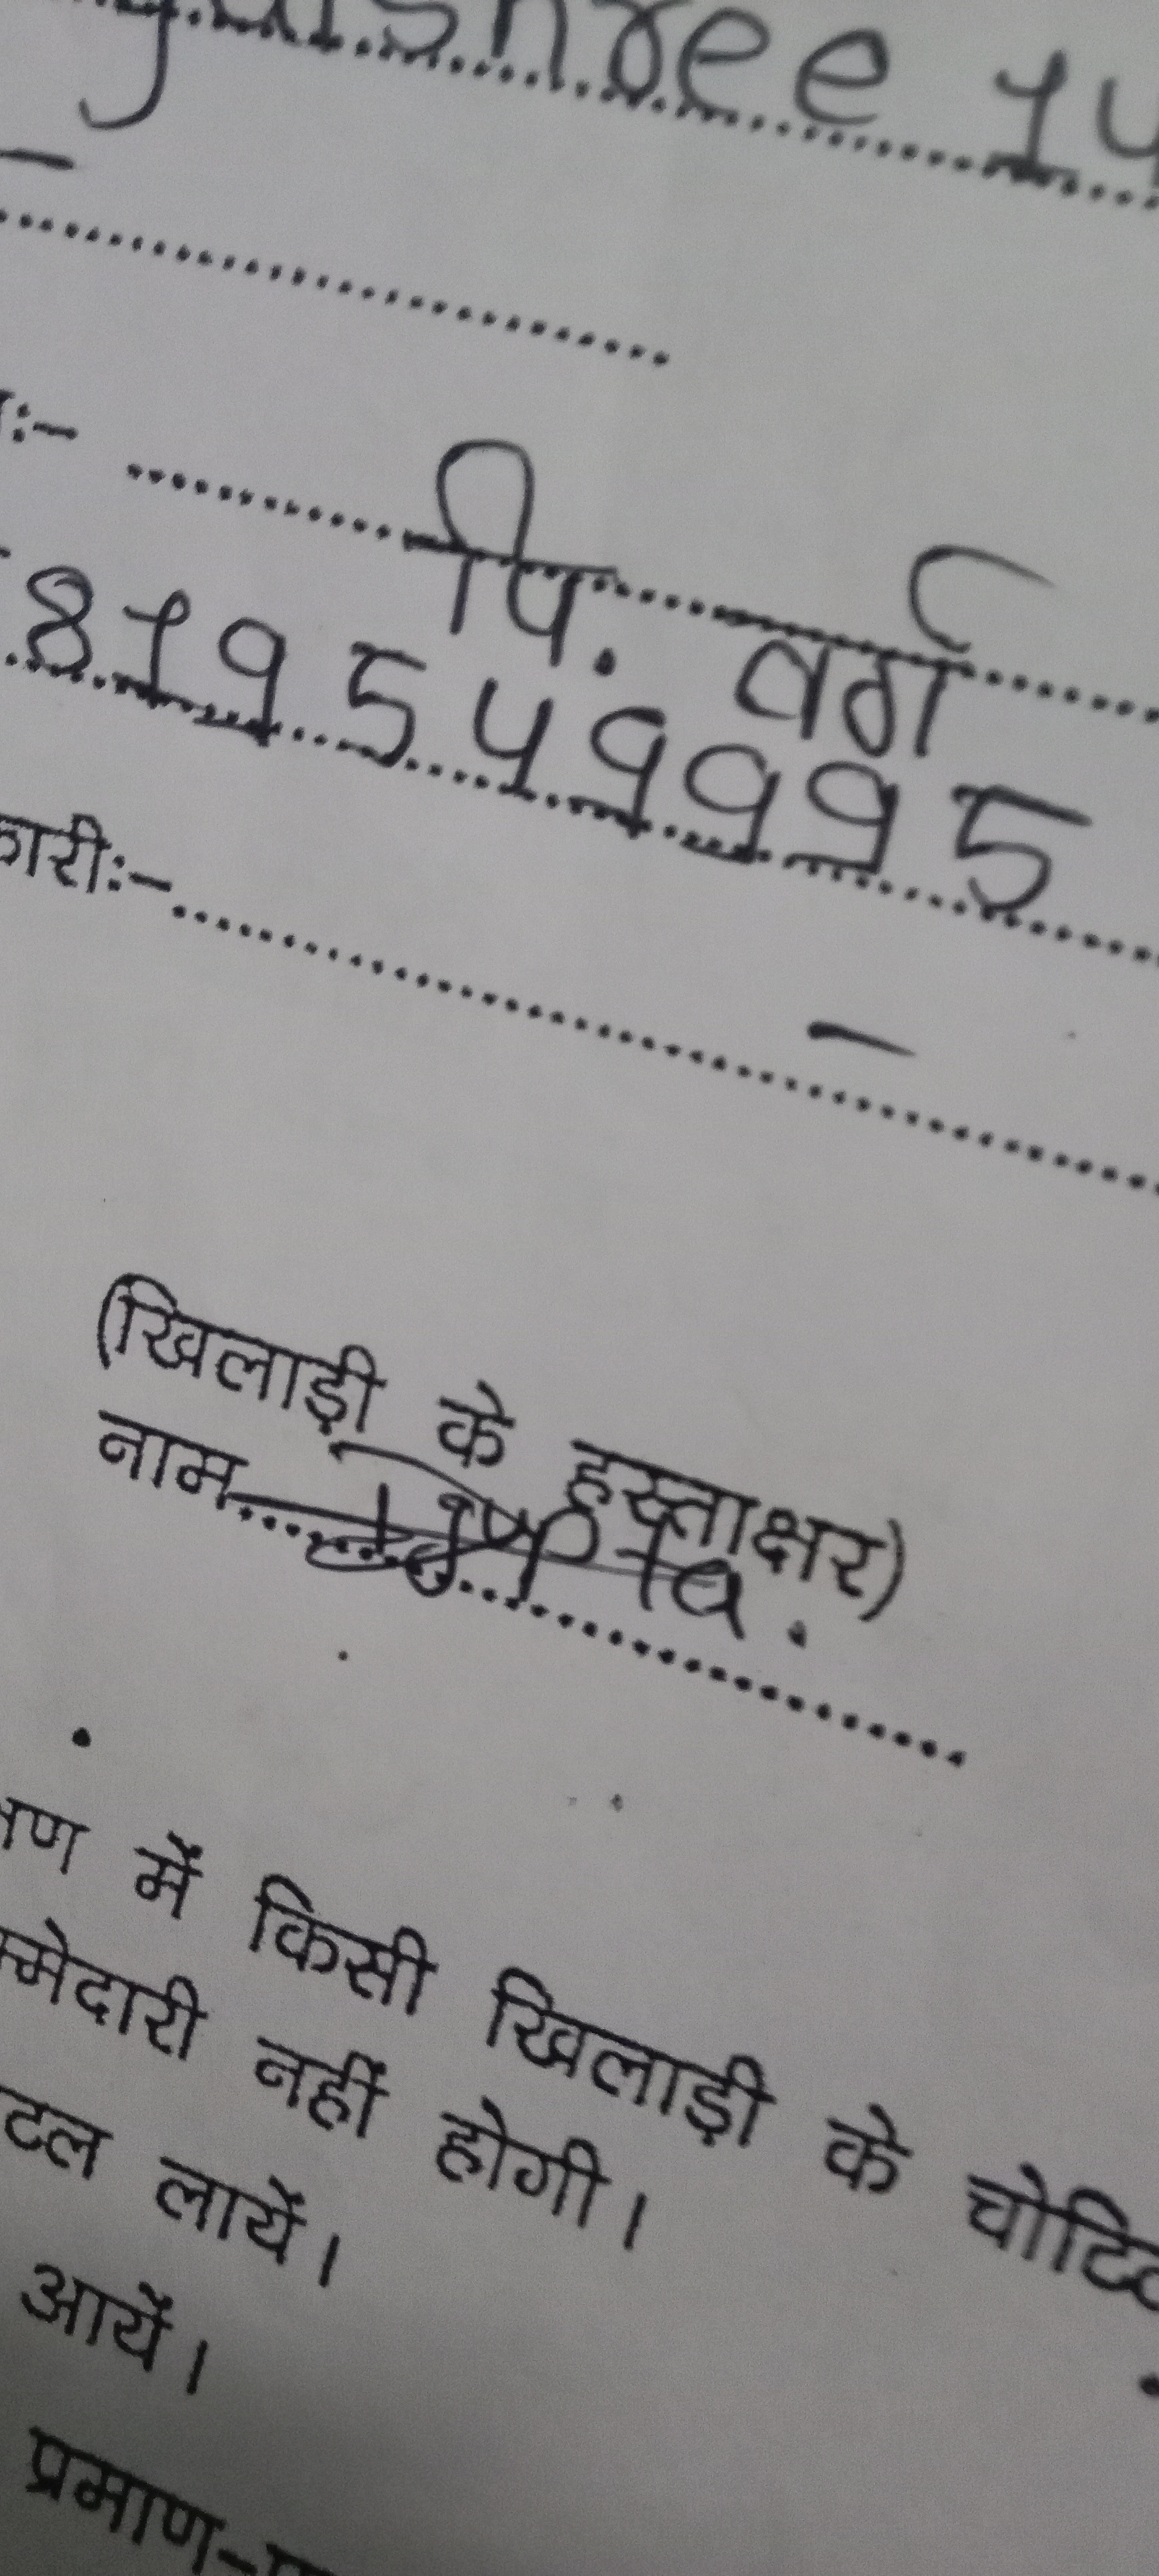 shree 14
:-
पि. वर्ग
819549995
कारीः- -
(खिलाड़ी के हस्ताक्षर)
नाम
में किसी खिलाड़ी के
नहीं होगी।
लायें।
आयें।
प्रमाण-